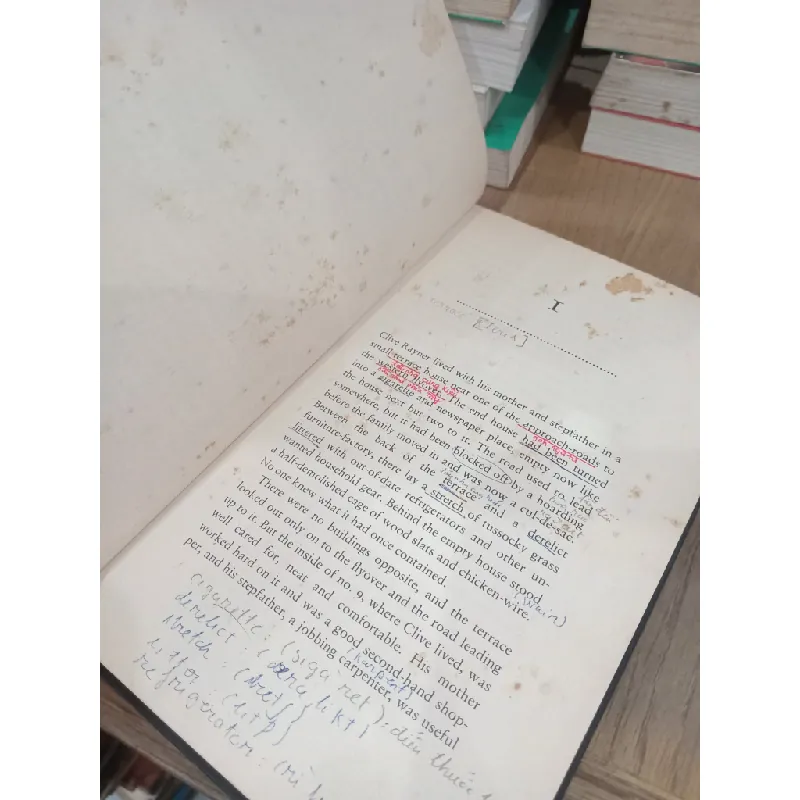 I
Clive Rayner lived with his mother and stepfather in a
small terrace house near one of the approach-roads to
the western flyover. The end house had been turned
into a cigarette and newspaper place, empty now like
the house next but two to it. The road used to lead
somewhere, but it had been blocked off by a hoarding
before the family moved to and was now a cul-de-sac.
Between the back of the terrace and a derelict
furniture-factory, there lay a stretch of tussocky grass
littered with out-of-date refrigerators and other un-
wanted household gear. Behind the empty house stood
a half-demolished cage of wood slats and chicken-wire.
No one knew what it had once contained.
There were no buildings opposite, and the terrace
looked out only on to the flyover and the road leading
up to it. But the inside of no. 9, where Clive lived, was
well cared for, neat and comfortable. His mother
worked hard on it and was a good second-hand shop-
per, and his stepfather, a jobbing carpenter, was useful
cigarette: (sigəret): điếu thuốc
derelict: (derilikt)
stretch: (stretʃ)
litter: (litə)
refrigerator: (ri